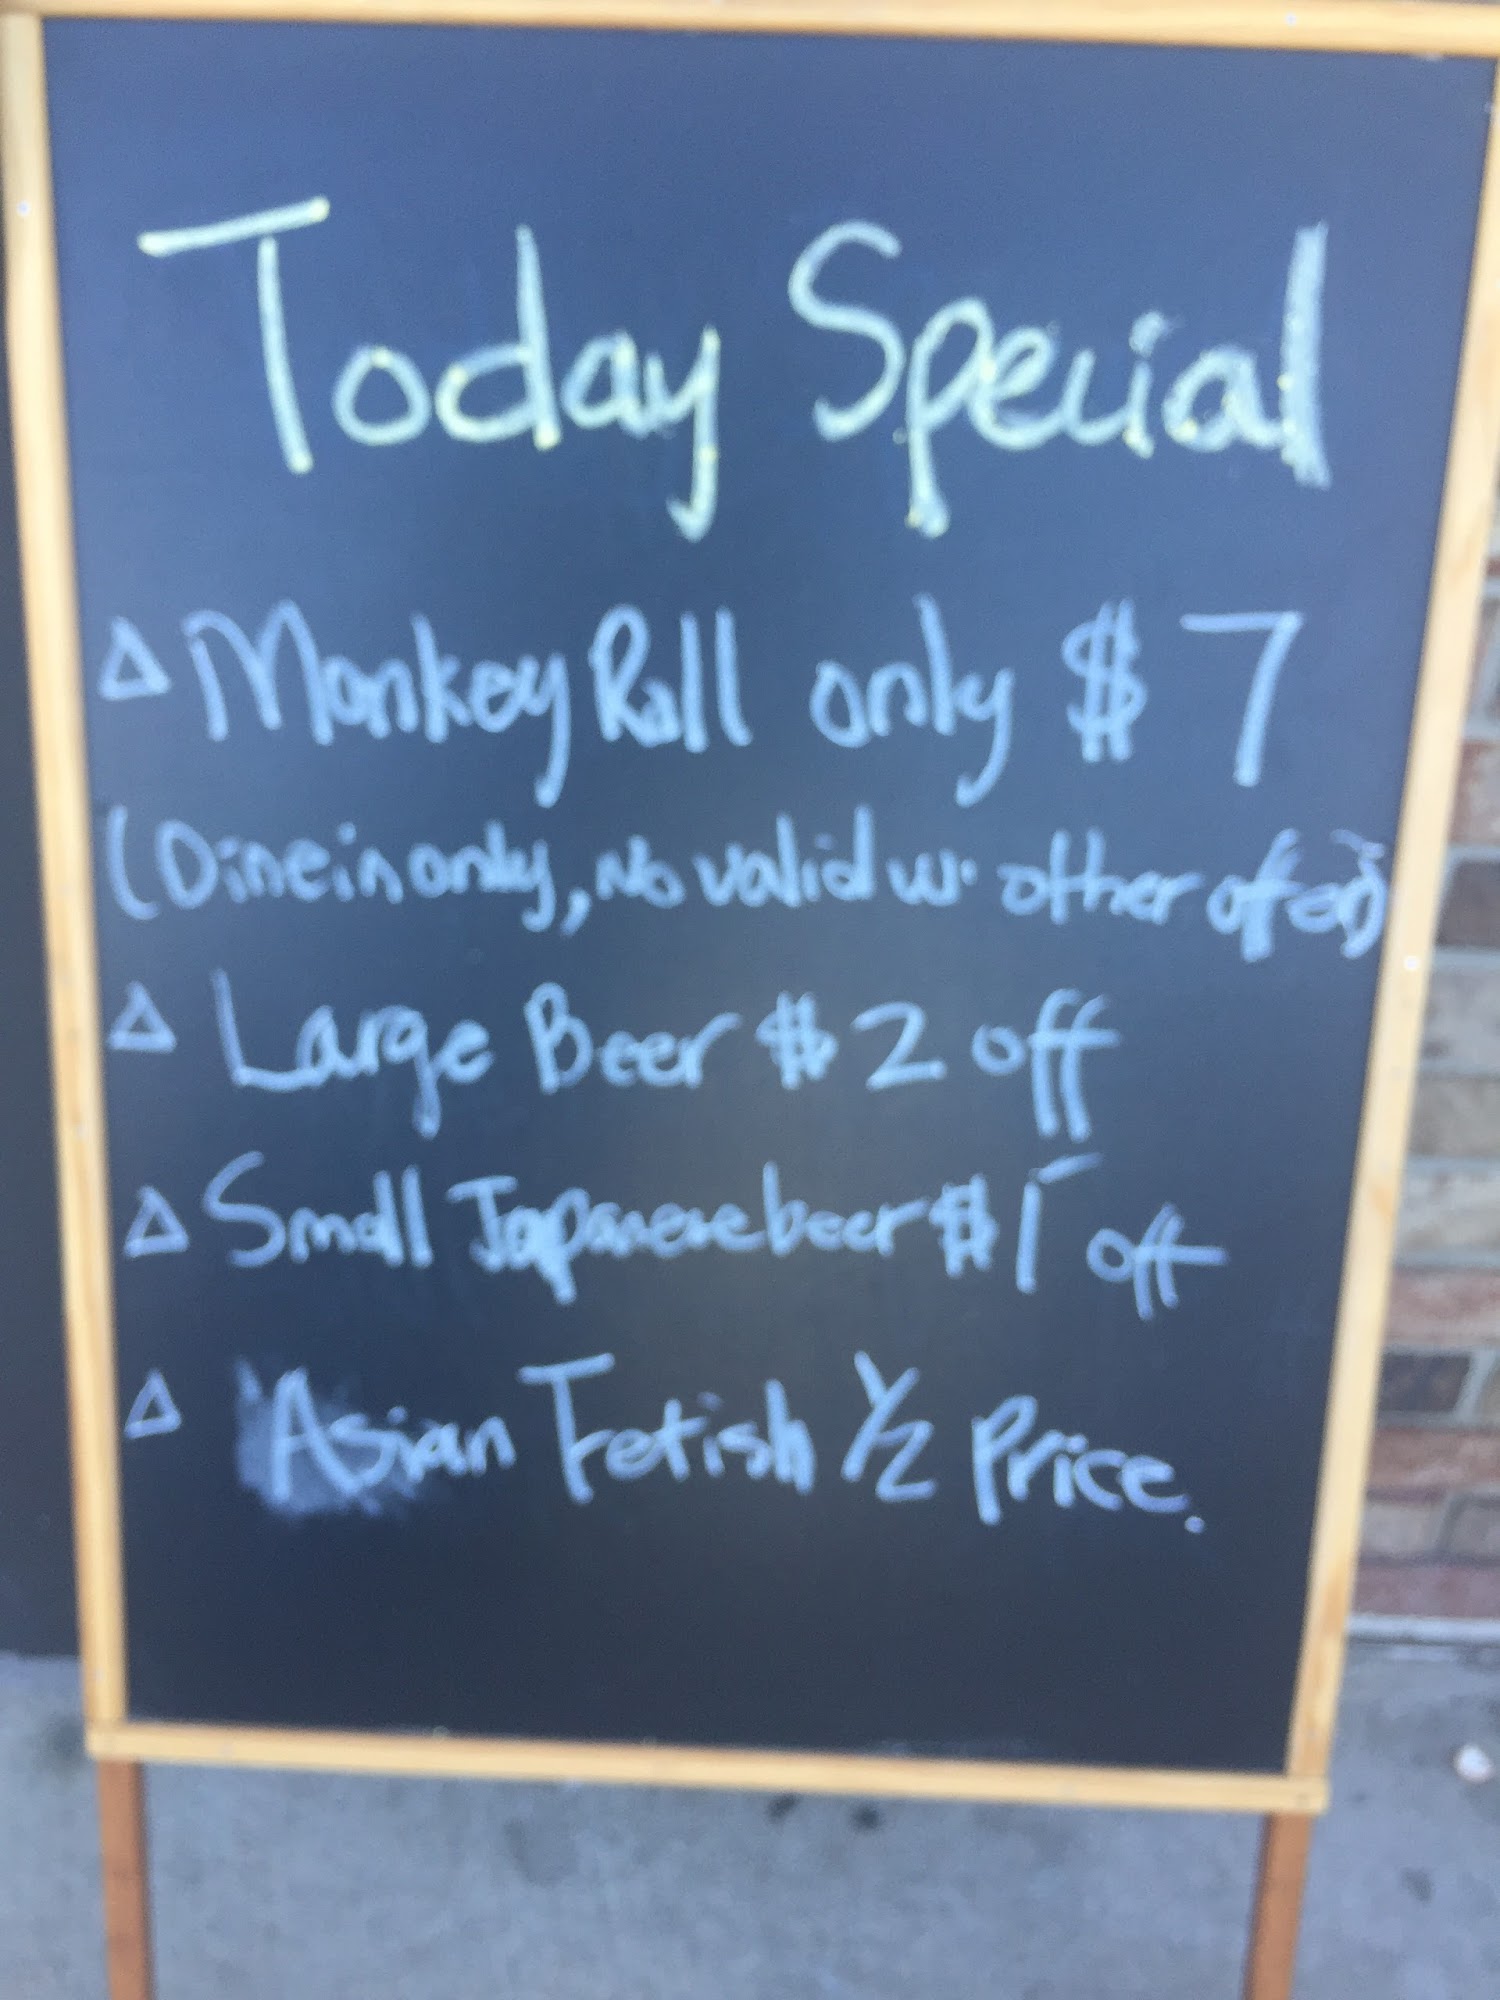 Today Special
Δ Monkey Roll only $7
(Dine in only, No valid w. other offer)
Δ Large Beer $2 off
Δ Small Japanese beer $1 off
Δ Asian Fetish 1/2 Price.